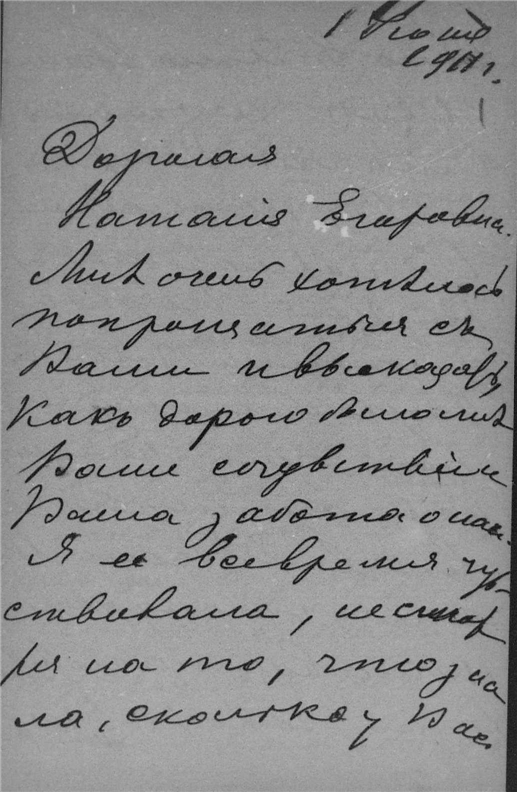 1 Июня
1911 г.
Дорогая
Наталія Егоровна.
Мнѣ очень хотѣлось
попрощаться съ
Вами и высказать,
какъ дорого было мнѣ
Ваше сочувствіе и
Ваша забота о нас.
Я ее все время чув-
ствовала, несмот
ря на то, что зна
ла, сколько у Вас